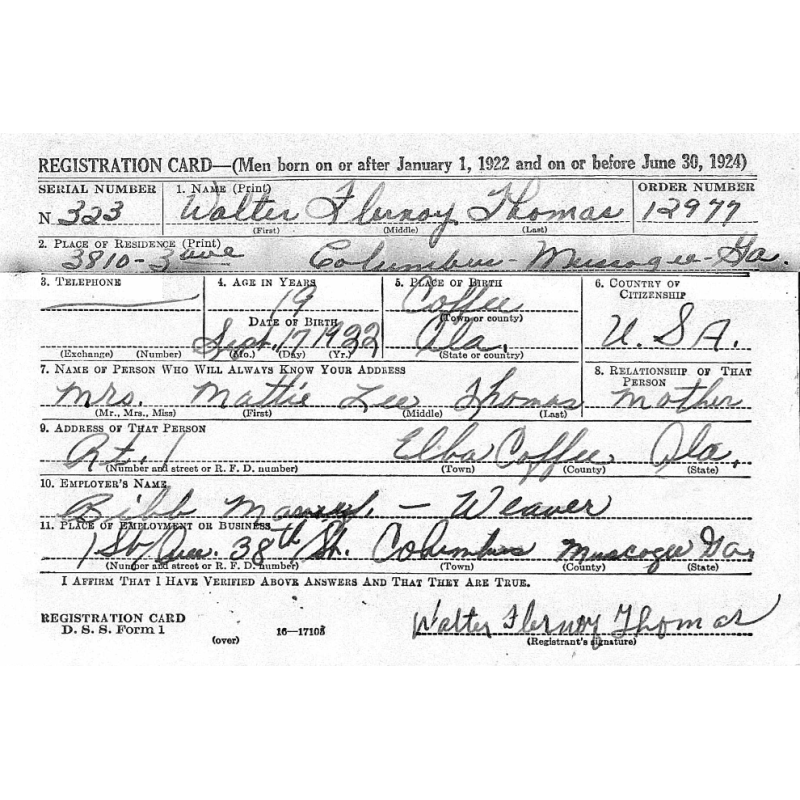 REGISTRATION CARD—(Men born on or after January 1, 1922 and on or before June 30, 1924)
SERIAL NUMBER 1. NAME (Print) ORDER NUMBER
N 323 Walter Flernoy Thomas 12977
(First) (Middle) (Last)
2. PLACE OF RESIDENCE (Print)
3810 - 3 ave Columbus - Muscogee - Ga.
3. TELEPHONE 4. AGE IN YEARS 5. PLACE OF BIRTH 6. COUNTRY OF CITIZENSHIP
19 Coffee
DATE OF BIRTH (Town or county)
Sept. 17 1922 Ala. U.S.A.
(Exchange) (Number) (Mo.) (Day) (Yr.) (State or country)
7. NAME OF PERSON WHO WILL ALWAYS KNOW YOUR ADDRESS 8. RELATIONSHIP OF THAT PERSON
Mrs. Mattie Lee Thomas Mother
(Mr., Mrs., Miss) (First) (Middle) (Last)
9. ADDRESS OF THAT PERSON
Rt. 1 Elba Coffee Ala.
(Number and street or R. F. D. number) (Town) (County) (State)
10. EMPLOYER'S NAME
Bibb - Weaver
11. PLACE OF EMPLOYMENT OR BUSINESS
1st Ave. 38th St. Columbus Muscogee Ga.
(Number and street or R. F. D. number) (Town) (County) (State)
I AFFIRM THAT I HAVE VERIFIED ABOVE ANSWERS AND THAT THEY ARE TRUE.
REGISTRATION CARD
D. S. S. Form 1 Walter Flernoy Thomas
(over) 16—17105 (Registrant's signature)